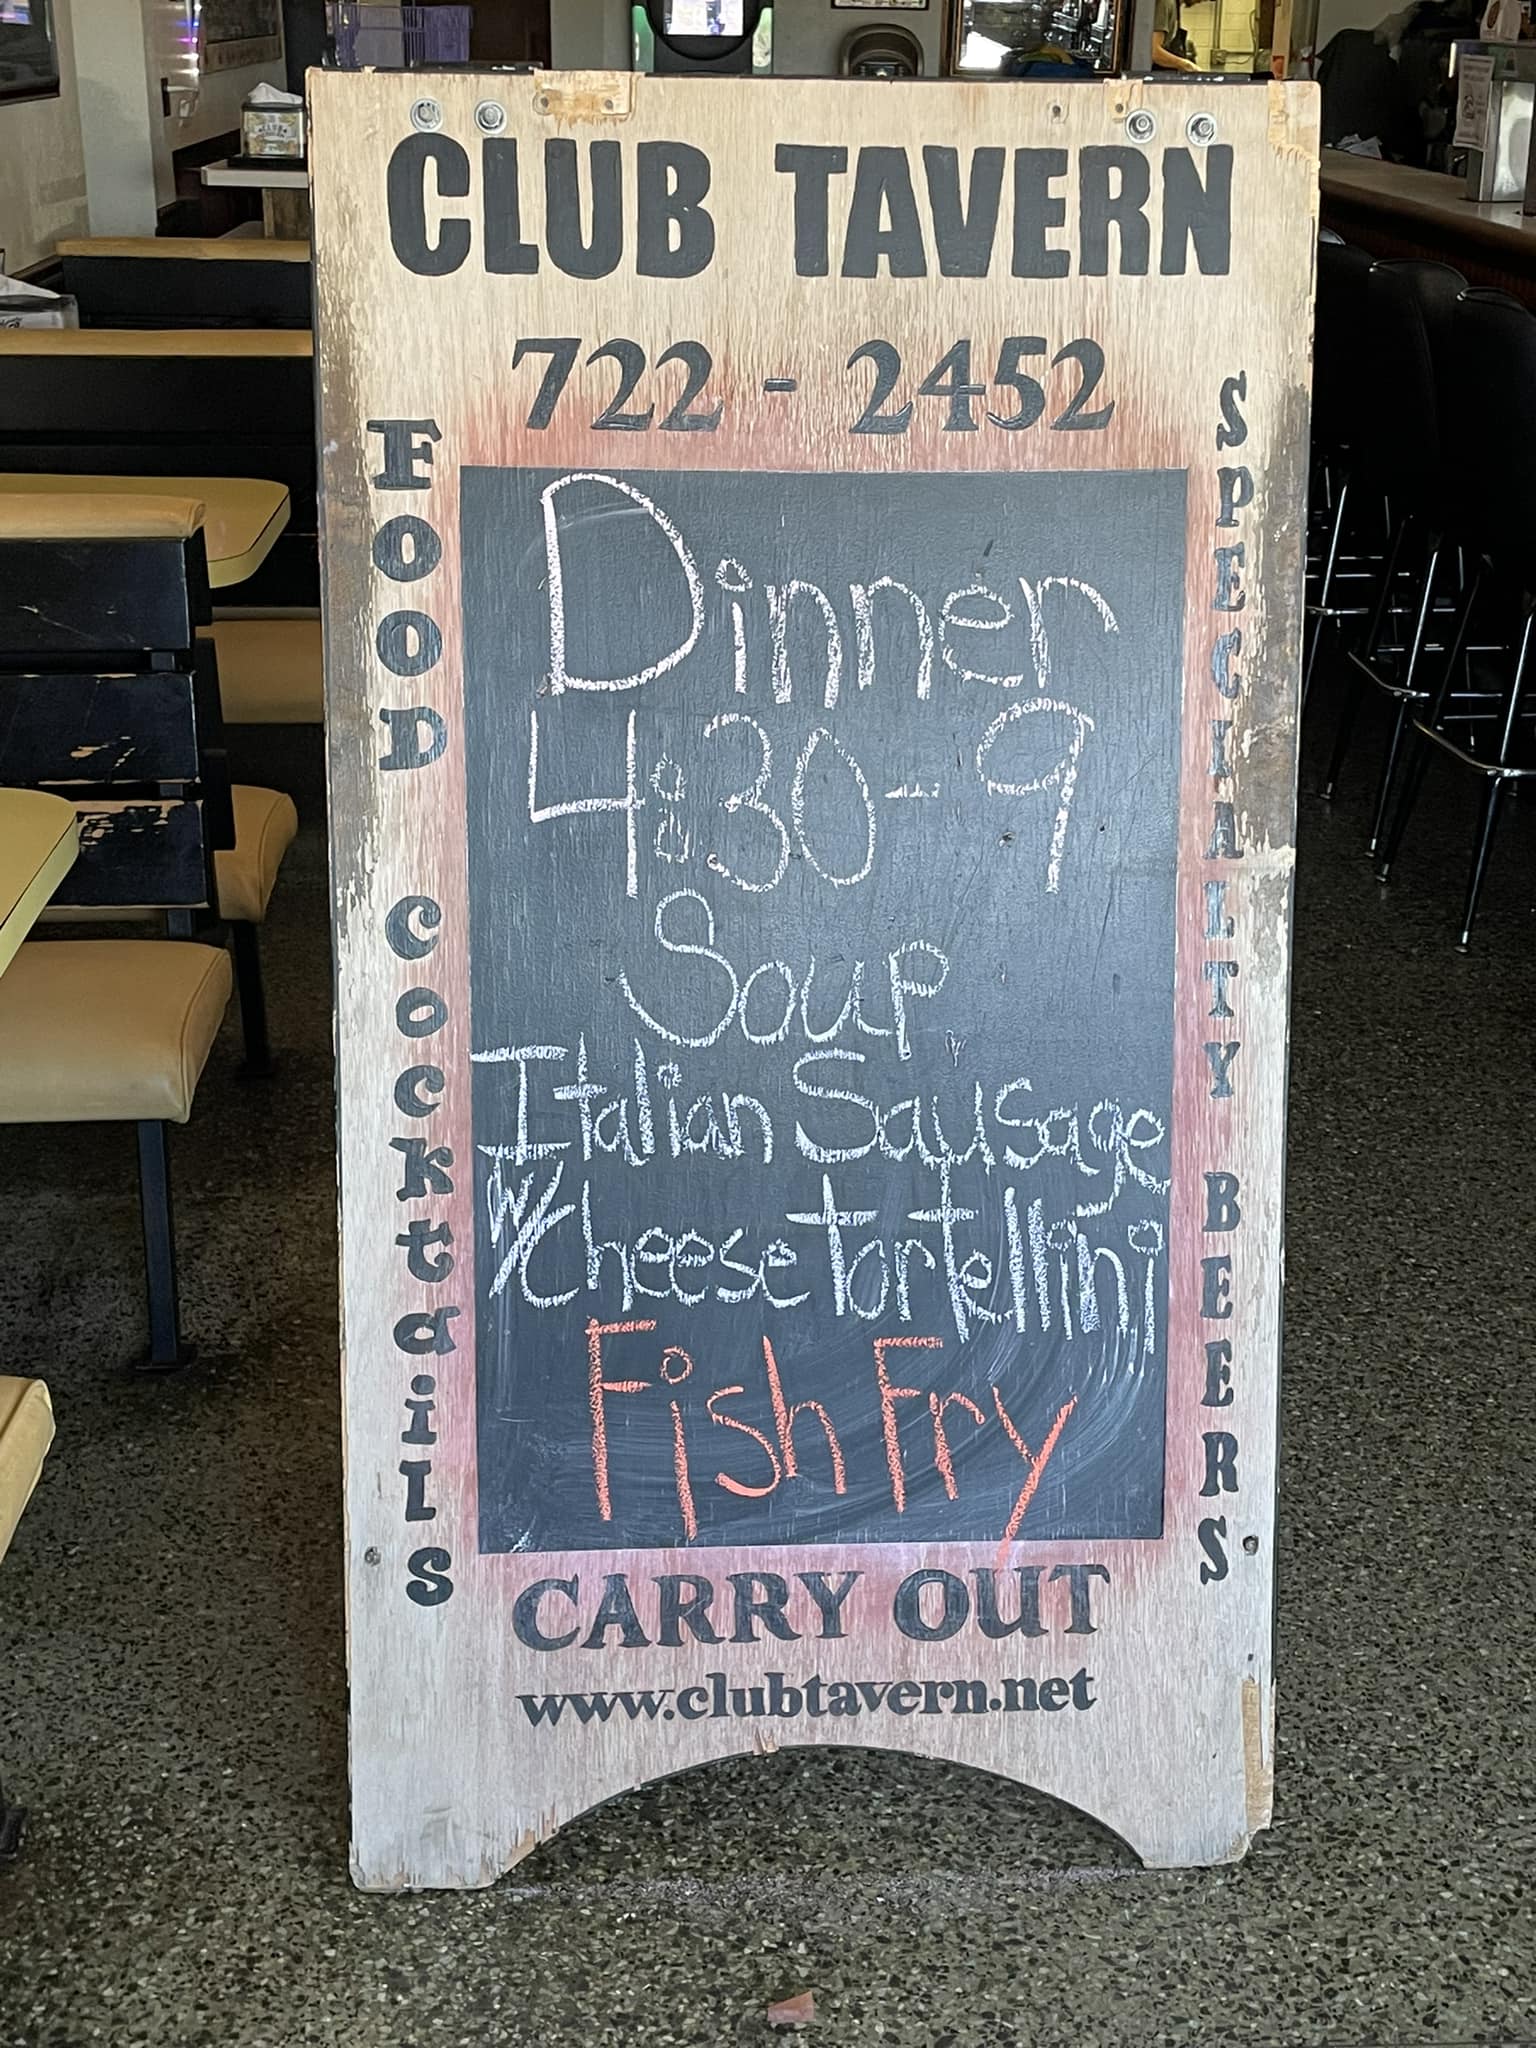 CLUB TAVERN
722-2452
FOOD COCKtaiLS
SPECIALTY BEERS
Dinner
4:30-9
Soup
Italian Sausage
w/Cheese tortellini
Fish Fry
CARRY OUT
www.clubtavern.net